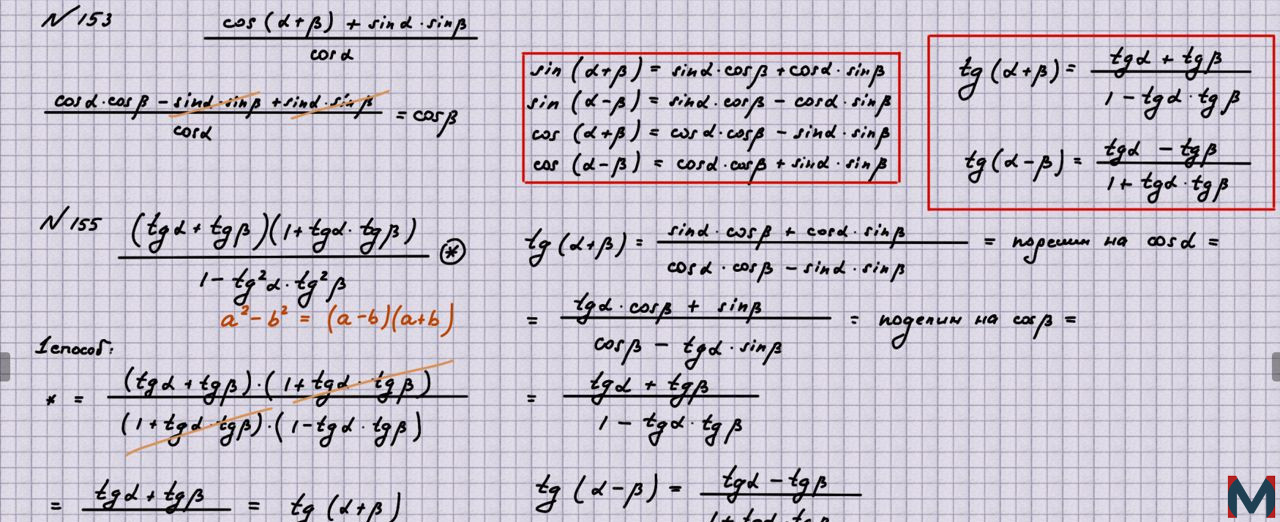 N 153
cos (α+β) + sinα·sinβ
cosα
cosα·cosβ - sinα·sinβ + sinα·sinβ
cosα
= cosβ
sin (α+β) = sinα·cosβ + cosα·sinβ
sin (α-β) = sinα·cosβ - cosα·sinβ
cos (α+β) = cosα·cosβ - sinα·sinβ
cos (α-β) = cosα·cosβ + sinα·sinβ
tg (α+β) = tgα + tgβ
1 - tgα·tgβ
tg (α-β) = tgα - tgβ
1 + tgα·tgβ
N 155
(tgα + tgβ)(1 + tgα·tgβ)
1 - tg²α·tg²β
*
a² - b² = (a-b)(a+b)
1 способ:
* = (tgα + tgβ)·(1 + tgα·tgβ)
(1 + tgα·tgβ)·(1 - tgα·tgβ)
= tgα + tgβ = tg (α+β)
tg (α+β) = sinα·cosβ + cosα·sinβ = поделим на cosα =
cosα·cosβ - sinα·sinβ
= tgα·cosβ + sinβ = поделим на cosβ =
cosβ - tgα·sinβ
= tgα + tgβ
1 - tgα·tgβ
tg (α-β) = tgα - tgβ
1 + tgα·tgβ
M